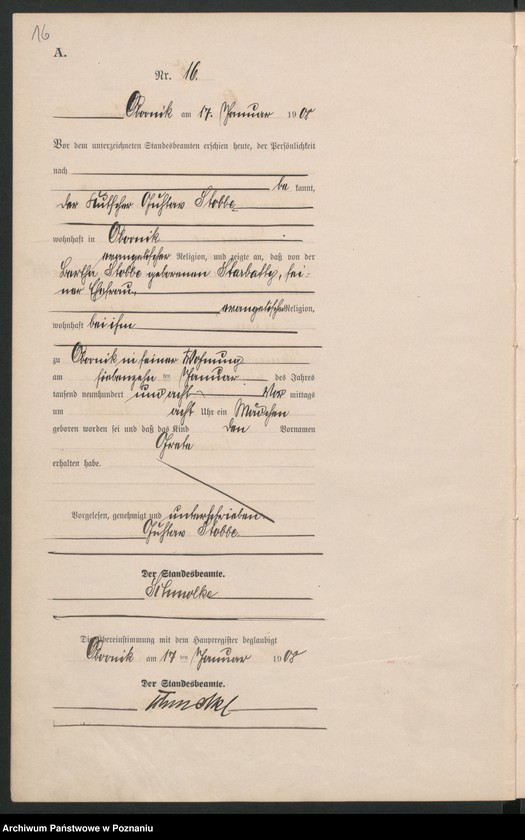 16
A.
Nr. 16.
Obornik am 17. Januar 1908
Vor dem unterzeichneten Standesbeamten erschien heute, der Persönlichkeit
nach
be kannt,
der Kutscher Gustav Stobbe
wohnhaft in Obornik
evangelischer Religion, und zeigte an, daß von der
Bertha Stobbe geborenen, sei-
ner Ehefrau,
evangelischer Religion,
wohnhaft bei ihm
zu Obornik in seiner Wohnung
am siebenzehn ten Januar des Jahres
tausend neunhundert und acht Vor mittags
um acht Uhr ein Mädchen
geboren worden sei und daß das Kind den Vornamen
Grete
erhalten habe.
Vorgelesen, genehmigt und unterschrieben
Gustav Stobbe.
Der Standesbeamte.
Schmolke
Die Übereinstimmung mit dem Hauptregister beglaubigt
Obornik am 17 ten Januar 1908
Der Standesbeamte.
Archiwum Państwowe w Poznaniu